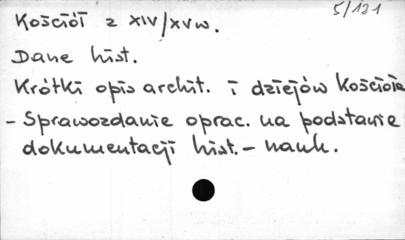 5/121
Kościół z XIV/XV w.
Dane hist.
Krótki opis archit. i dziejów Kościoła
- Sprawozdanie oprac. na podstawie
dokumentacji hist. - nauk.